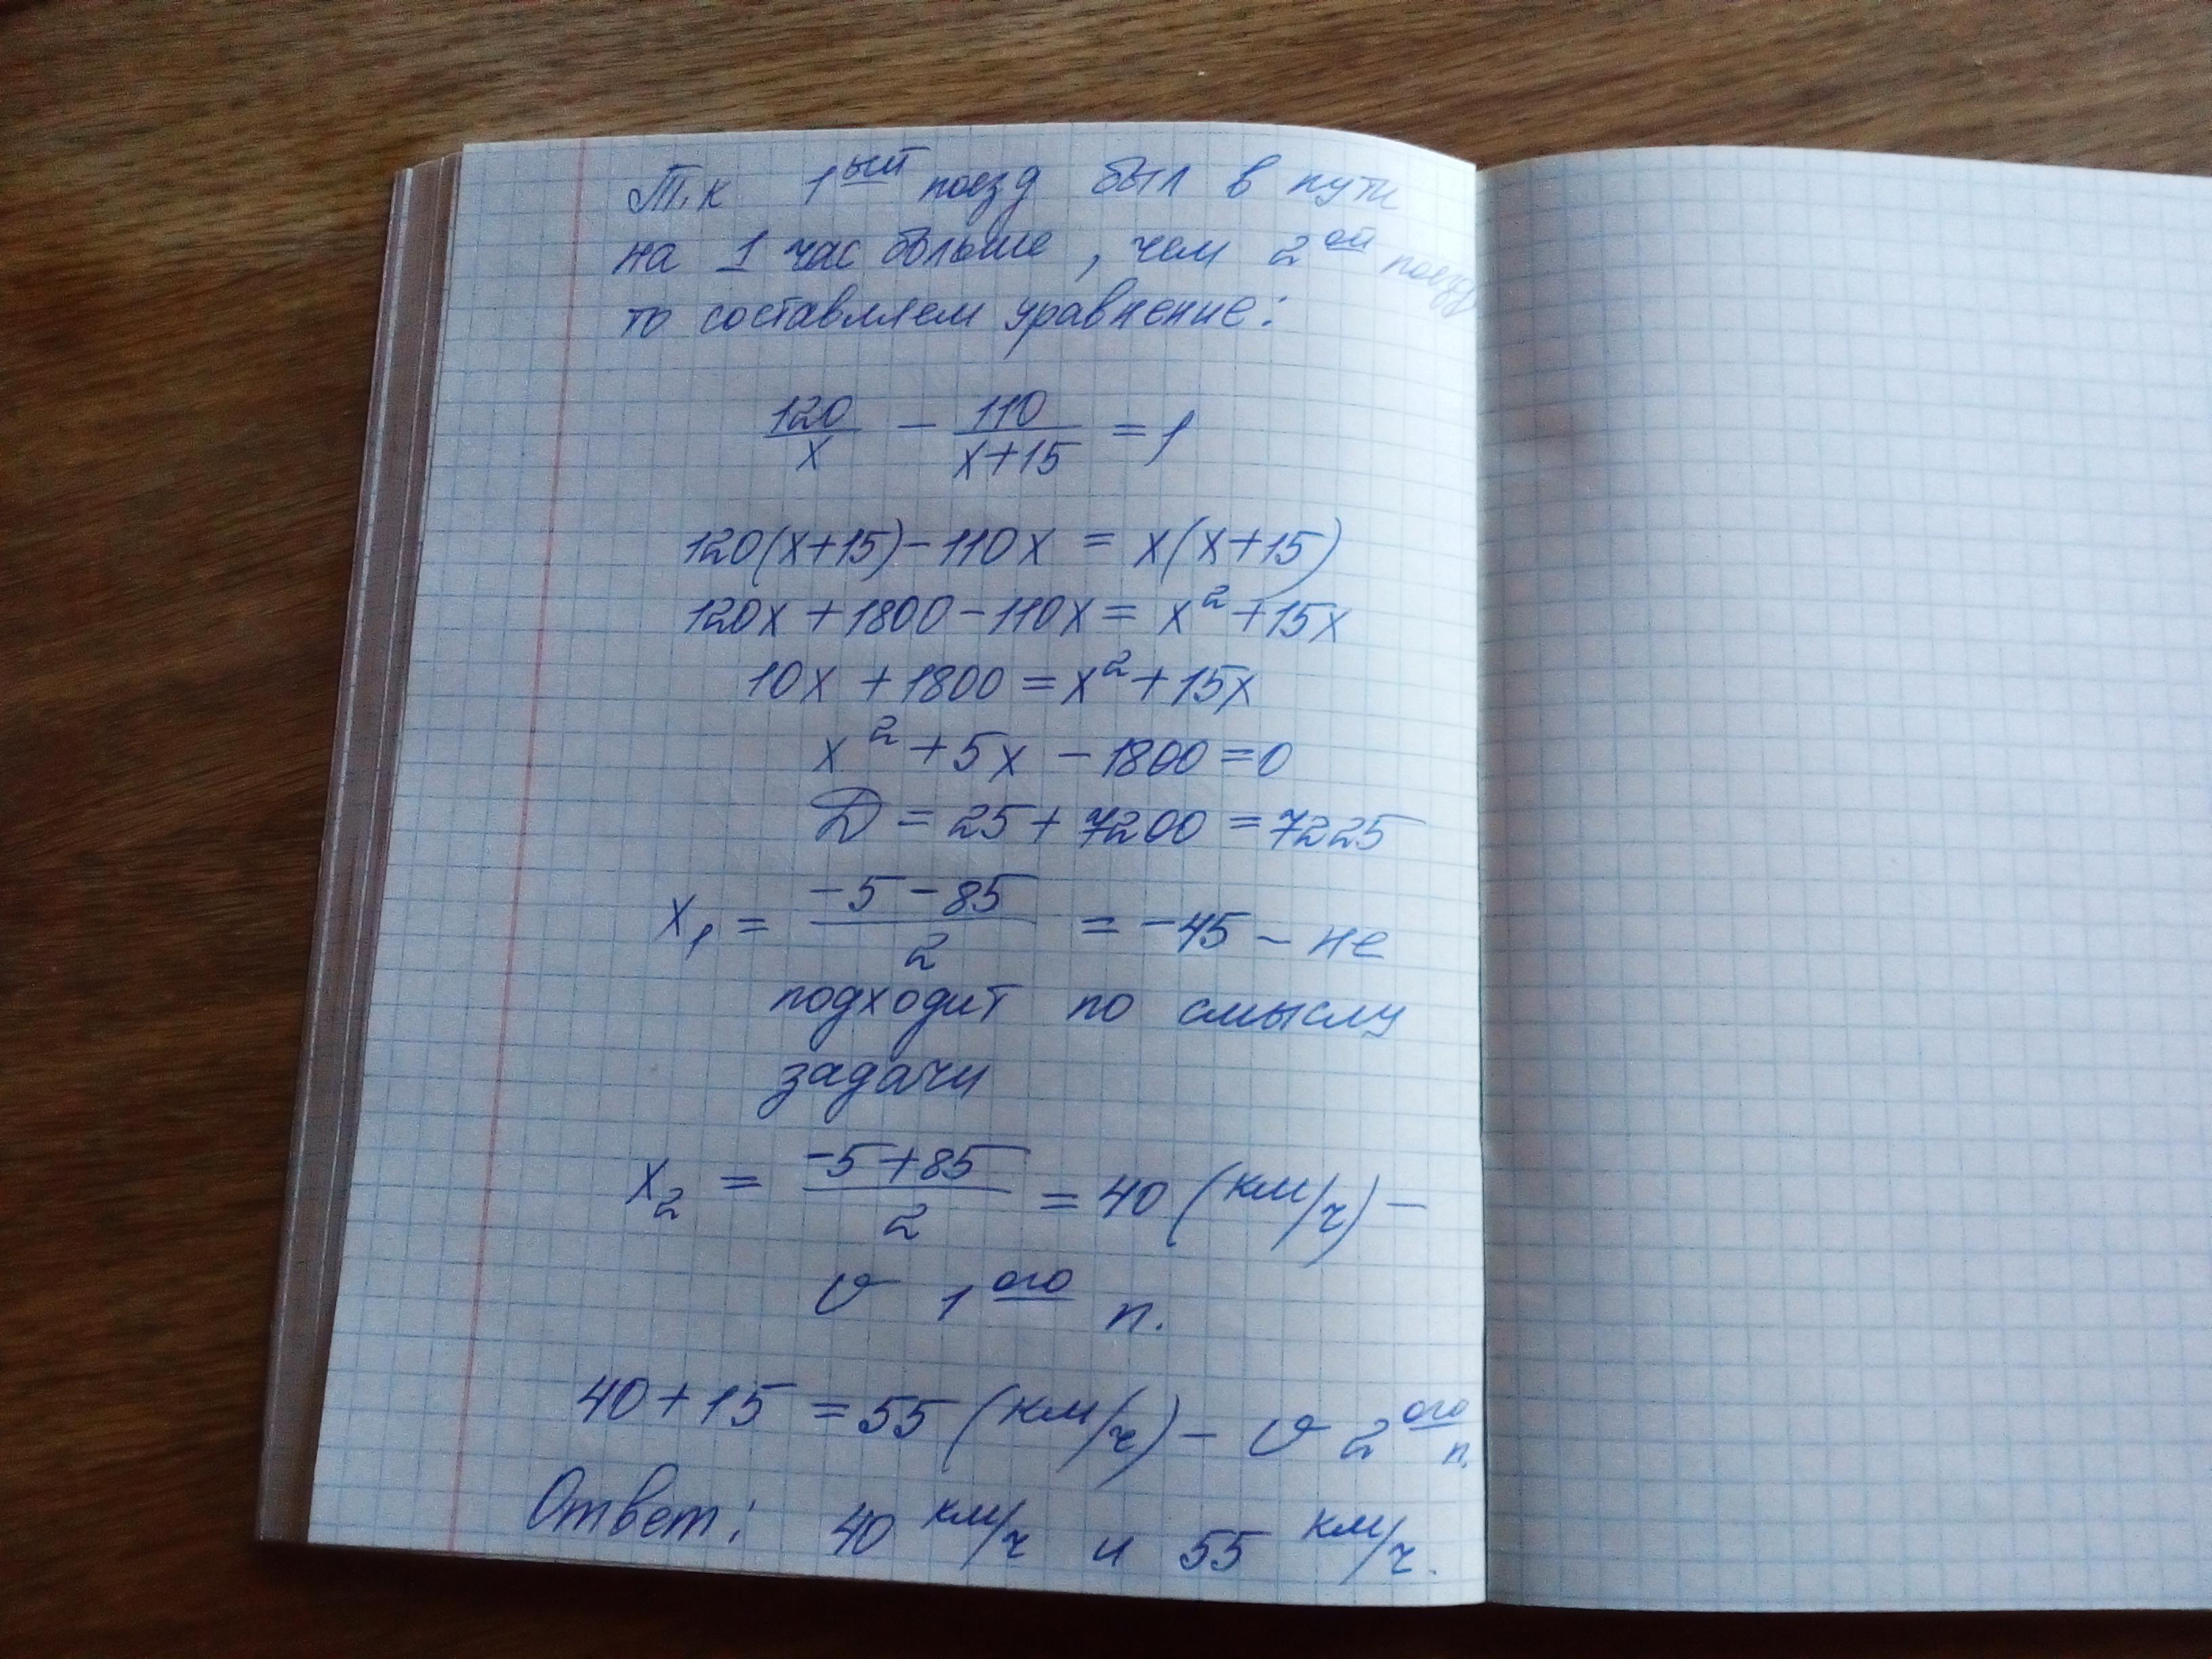 Т.к 1ый поезд был в пути
на 1 час больше, чем 2ой поезд
то составляем уравнение:
120/x - 110/(x+15) = 1
120(x+15)-110x = x(x+15)
120x+1800-110x = x²+15x
10x+1800=x²+15x
x²+5x-1800=0
D=25+7200=7225
x₁ = (-5-85)/2 = -45 - не
подходит по смыслу
задачи
x₂ = (-5+85)/2 = 40 (км/ч) -
v 1ого п.
40+15=55 (км/ч) - v 2ого п.
Ответ: 40 км/ч и 55 км/ч.